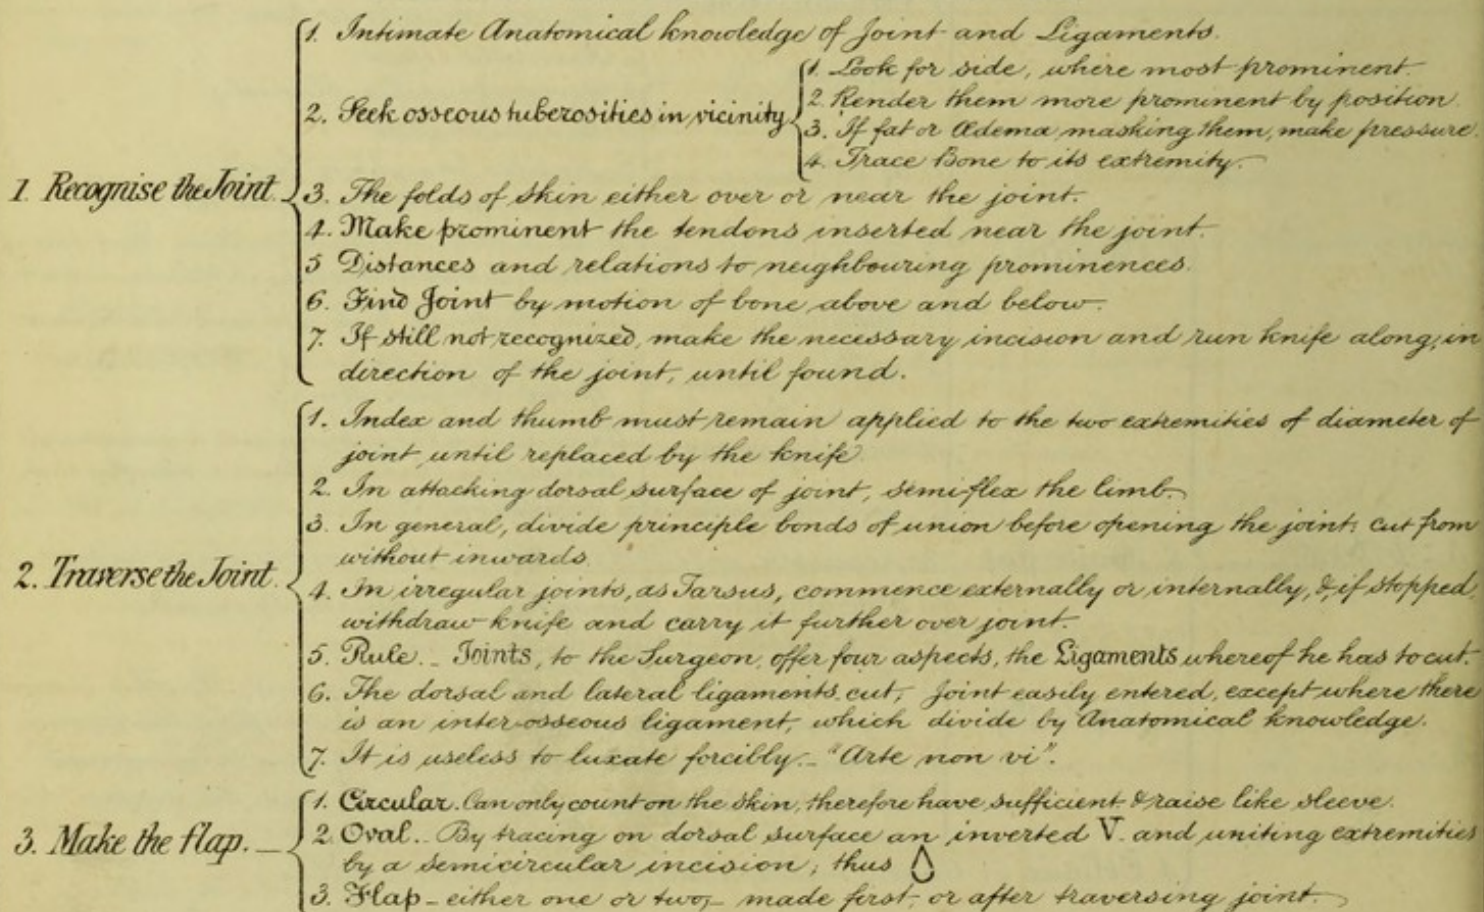 1. Intimate Anatomical knowledge of Joint and Ligaments.
2. Seek osseous tuberosities in vicinity
1. Look for side, where most prominent.
2. Render them more prominent by position
3. If fat or Œdema masking them, make pressure.
4. Trace Bone to its extremity.
1. Recognise the Joint.
3. The folds of skin either over or near the joint.
4. Make prominent the tendons inserted near the joint.
5 Distances and relations to neighbouring prominences.
6. Find Joint by motion of bone above and below.
7. If still not recognized, make the necessary incision and run knife along, in
direction of the joint, until found.
1. Index and thumb must remain applied to the two extremities of diameter of
joint until replaced by the knife
2. In attacking dorsal surface of joint, semi-flex the limb.
3. In general, divide principle bonds of union before opening the joint: cut from
without inwards.
2. Traverse the Joint.
4. In irregular joints, as Tarsus, commence externally or internally, & if stopped,
withdraw knife and carry it further over joint.
5. Rule._ Joints, to the Surgeon, offer four aspects, the Ligaments whereof he has to cut.
6. The dorsal and lateral ligaments cut, Joint easily entered, except where there
is an inter-osseous ligament, which divide by Anatomical knowledge.
7. It is useless to luxate forcibly._ "Arte non vi".
3. Make the flap._
1. Circular. Can only count on the skin, therefore have sufficient & raise like sleeve.
2. Oval._ By tracing on dorsal surface an inverted V. and uniting extremities
by a semicircular incision; thus
3. Flap_ either one or two,_ made first, or after traversing joint.